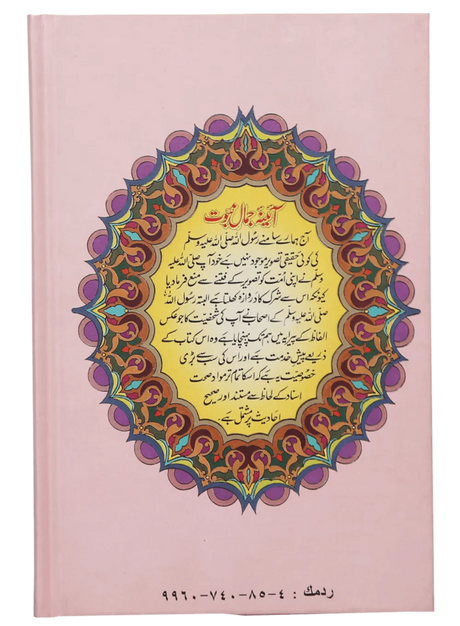 آئینۂ جمالِ نبوت
آج ہمارے سامنے رسول اللہ صلی اللہ علیہ وسلم
کی کوئی حقیقی تصویر موجود نہیں ہے خود آپ صلی اللہ علیہ
وسلم نے اپنی امت کو تصویر کے فتنے سے منع فرما دیا
کیونکہ اس سے شرک کا دروازہ کھلتا ہے البتہ رسول اللہ
صلی اللہ علیہ وسلم کے اصحاب نے آپ کی شخصیت کا جو عکس
الفاظ کے پیرایہ میں ہم تک پہنچایا ہے وہ اس کتاب کے
ذریعے پیش خدمت ہے اور اس کی سب سے بڑی
خصوصیت یہ ہے کہ اسکا تمام تر مواد صحت
اسناد کے لحاظ سے مستند اور صحیح
احادیث پر مشتمل ہے
ردمك : ٤-٨٥-٧٤٠-٩٩٦٠